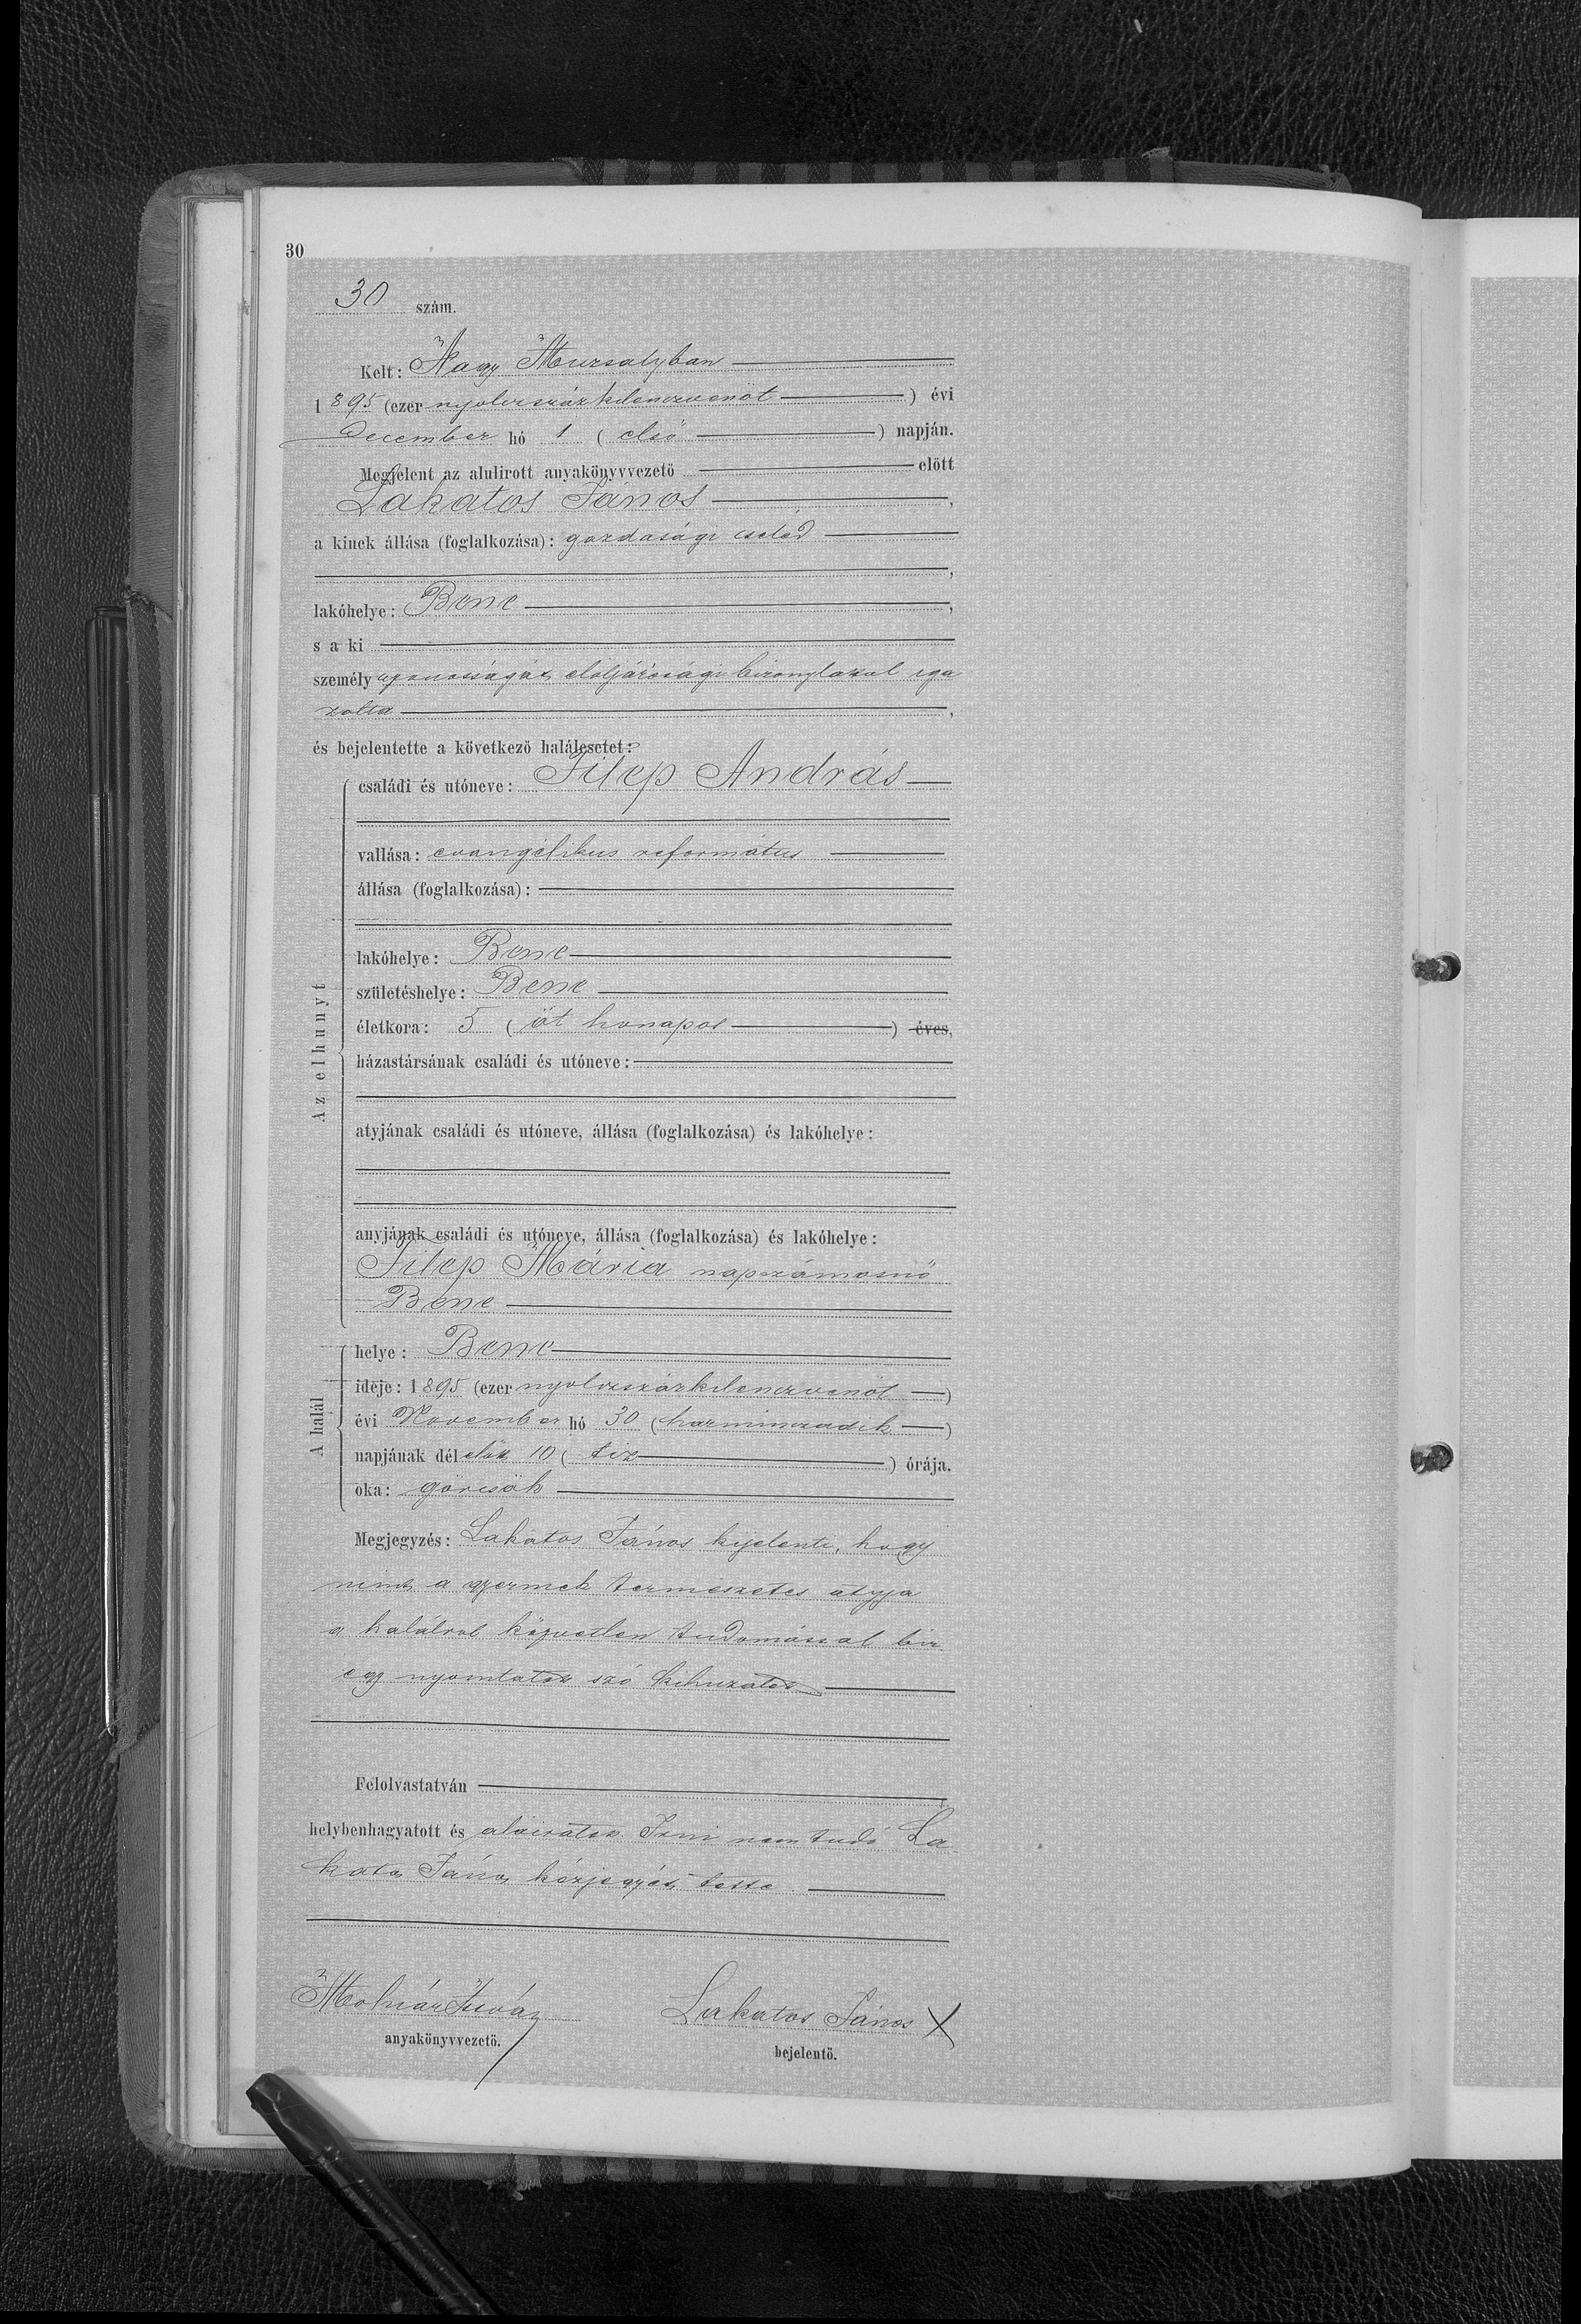 30
30 szám.
Kelt: Nagy Muzsalyban
1895 (ezer nyolczszázkilenczvenöt) évi
December hó 1 (első) napján.
Megjelent az alulirott anyakönyvvezető előtt
Lakatos János,
a kinek állása (foglalkozása): gazdasági cseléd
,
lakóhelye: Bene,
s a ki
személyazonosságát elöljárósági bizonylattal iga
zolta,
és bejelentette a következő halálesetet:
Az elhunyt
családi és utóneve: Filep András
vallása: evangélikus református
állása (foglalkozása):
lakóhelye: Bene
születéshelye: Bene
életkora: 5 (öt honapos) éves,
házastársának családi és utóneve:
atyjának családi és utóneve, állása (foglalkozása) és lakóhelye:
anyjának családi és utóneve, állása (foglalkozása) és lakóhelye:
Filep Mária napszámosnő
Bene
A halál
helye: Bene
ideje: 1895 (ezer nyolczszázkilenczvenöt)
évi November hó 30 (harminczadik)
napjának délelőtt 10 (tiz) órája.
oka: görcsök
Megjegyzés: Lakatos János kijelenti, hogy
mint a gyermek természetes atyja
a halálról közvetlen tudomással bir
egy nyomtatott szó kihuzatott
Felolvastatván
helybenhagyatott és aláiratott. Irni nem tudó La
katos János kézjegyét tette.
Molnár István
anyakönyvvezető.
Lakatos János X
bejelentő.